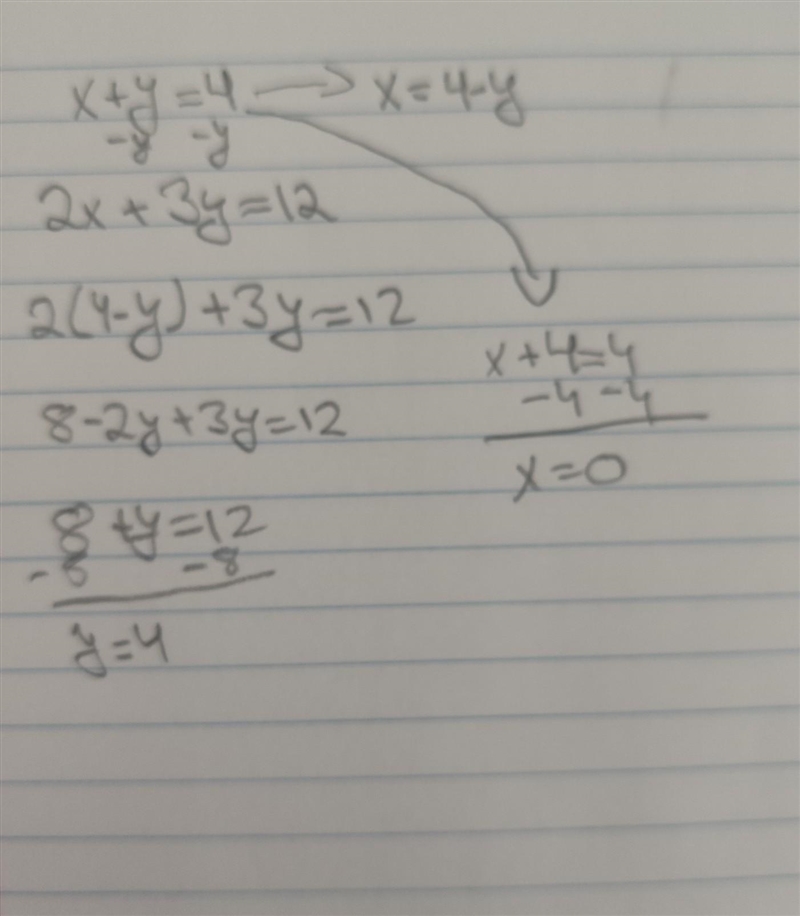 x+y=4 → x=4-y
-y -y
2x+3y=12
2(4-y)+3y=12
8-2y+3y=12
8+y=12
-8 -8
y=4
x+4=4
-4 -4
x=0